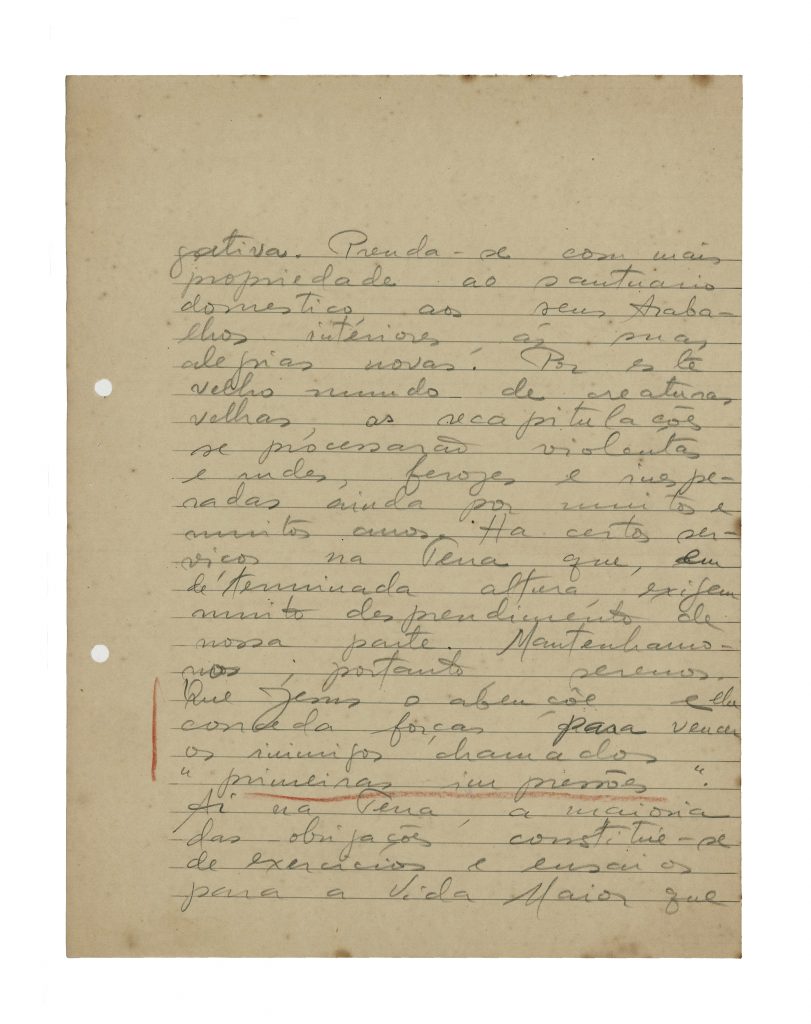 gativa. Prenda-se com mais
propriedade ao santuario
domestico, aos seus traba-
lhos intériores, ás suas
alegrias novas. Por este
velho mundo de creaturas
velhas, as recapitulações
se processarão violentas
e rudes, ferozes e inespe-
radas ainda por muitos e
muitos anos. Ha certos ser-
viços na Terra que, em
determinada altura, exigem
muito desprendimento de
nossa parte. Mantenhamo-
nos, portanto, serenos.
Que Jesus o abençôe e lhe
conceda forças para vencer
os inimigos chamados
"primeiras impressões".
Ai na Terra, a maioria
das obrigações constitue-se
de exercicios e ensaios
para a Vida Maior que